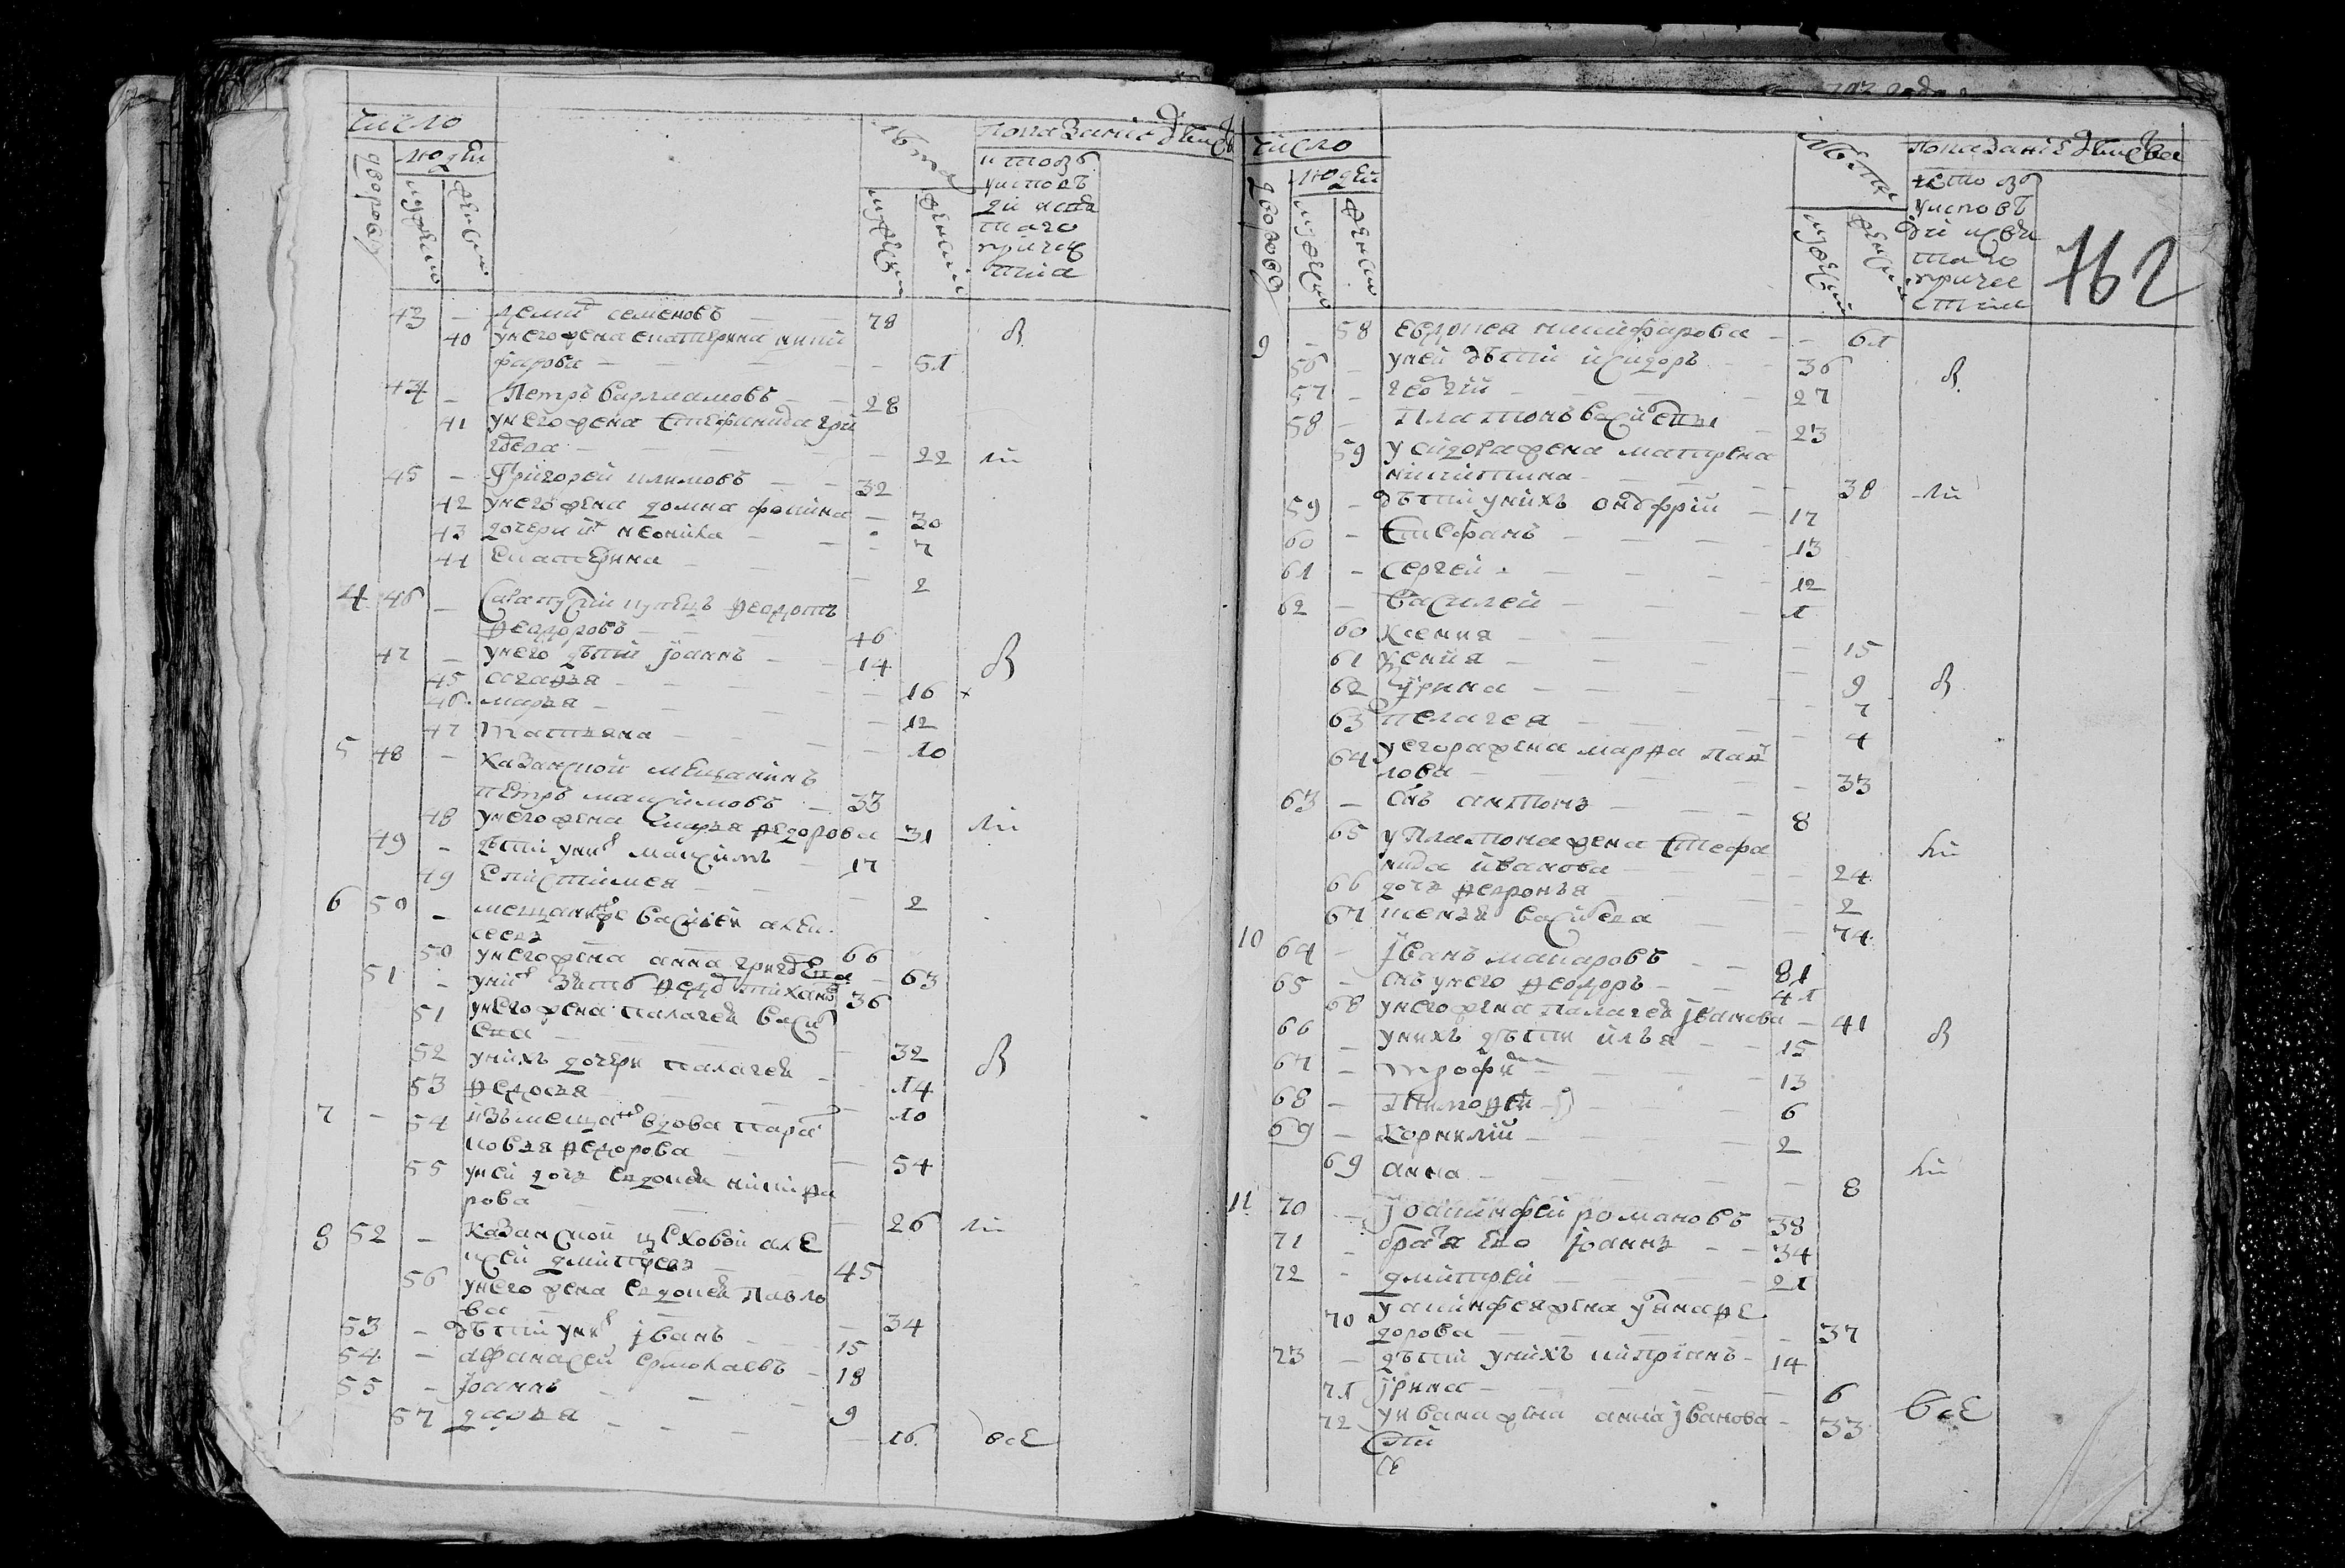 число
людей
дворовъ
мужеска
женска
лѣта
мужеска
женска
Показаніе дѣйств
кто бы
у испове
ди и свя
таго
причас
тия
43 - Демид семеновъ - 78
40 унего жена екатерина ники
фарова - 51
44 - Петръ варлаамовъ - 28
41 унего жена Стефанида гри
горьева - 22
45 - Григорей климовъ - 32
42 унего жена домна фокина - 30
43 дочери их неонила - 7
44 Екатерина - 2
4 46 - купецъ Ѳеодотъ
Ѳеодоровъ - 46
47 - унего дѣти Іоаннъ - 14
45 агаѳья - 16
46 марья - 12
47 татьяна - 10
5 48 - казанской мещанинъ
петръ максимовъ - 33
48 унего жена марья Ѳедорова 31
49 - дѣти уних максимъ - 17
49 Епистимея - 2
6 50 - василей алек
сеевъ
50 унего жена анна григорьева 66
51 - уних зять Ѳедор тиханов - 63
36
51 унего жена палагея васил
ева - 32
52 унихъ дочери палагея - 14
53 Ѳедосья - 10
7 - 54 изъ мещан вдова пара
ковья Ѳедорова - 54
55 уней дочь евдокея никиѳа
рова - 26
8 52 - казанской цеховой але
ксей дмитревъ - 45
56 унего жена евдокея павло
ва - 34
53 - дѣти уних Іванъ - 15
54 - афанасей ермолаевъ - 18
55 - Іоаннъ - 9
57 дарья - 16
всѣ
число
людей
дворовъ
мужеска
женска
лѣта
мужеска
женска
Показаніе дѣйства
кто бы
у испове
ди и свя
таго
причас
тия
762
9 - 58 евдокея никифарова - 61
56 - уней дѣти исидоръ - 36
57 - георгий - 27
58 - Платонъ васильевы - 23
59 у сидора жена матрена
никитина - 38
59 - дѣти унихъ онофрий - 17
60 - Стефанъ - 13
61 - сергей - 12
62 - василей - 1
60 ксения - 15
61 ксения - 9
62 Ірина - 7
63 пелагея - 4
64 у егора жена марѳа пав
лова - 33
63 - снъ антонъ - 8
65 у Платона жена Стефа
нида иванова - 24
66 дочь Ѳевронья - 2
67 васильева - 74
10 64 - Іванъ макаровъ - 81
65 - снъ унего Ѳеодоръ - 41
68 унего жена палагея Іванова - 41
66 - унихъ дѣти илья - 15
67 - трофим - 13
68 - тимоѳей - 6
69 - корнилій - 2
69 анна - 8
11 70 - Іоакинфей романовъ 38
71 - братья его Іоаннъ - 34
72 - дмитрей - 21
70 у акинфея жена Ѳе
дорова - 37
73 - дѣти унихъ кипріанъ - 14
71 Ірина - 6
72 у ивана жена анна Іванова - 33
всѣ